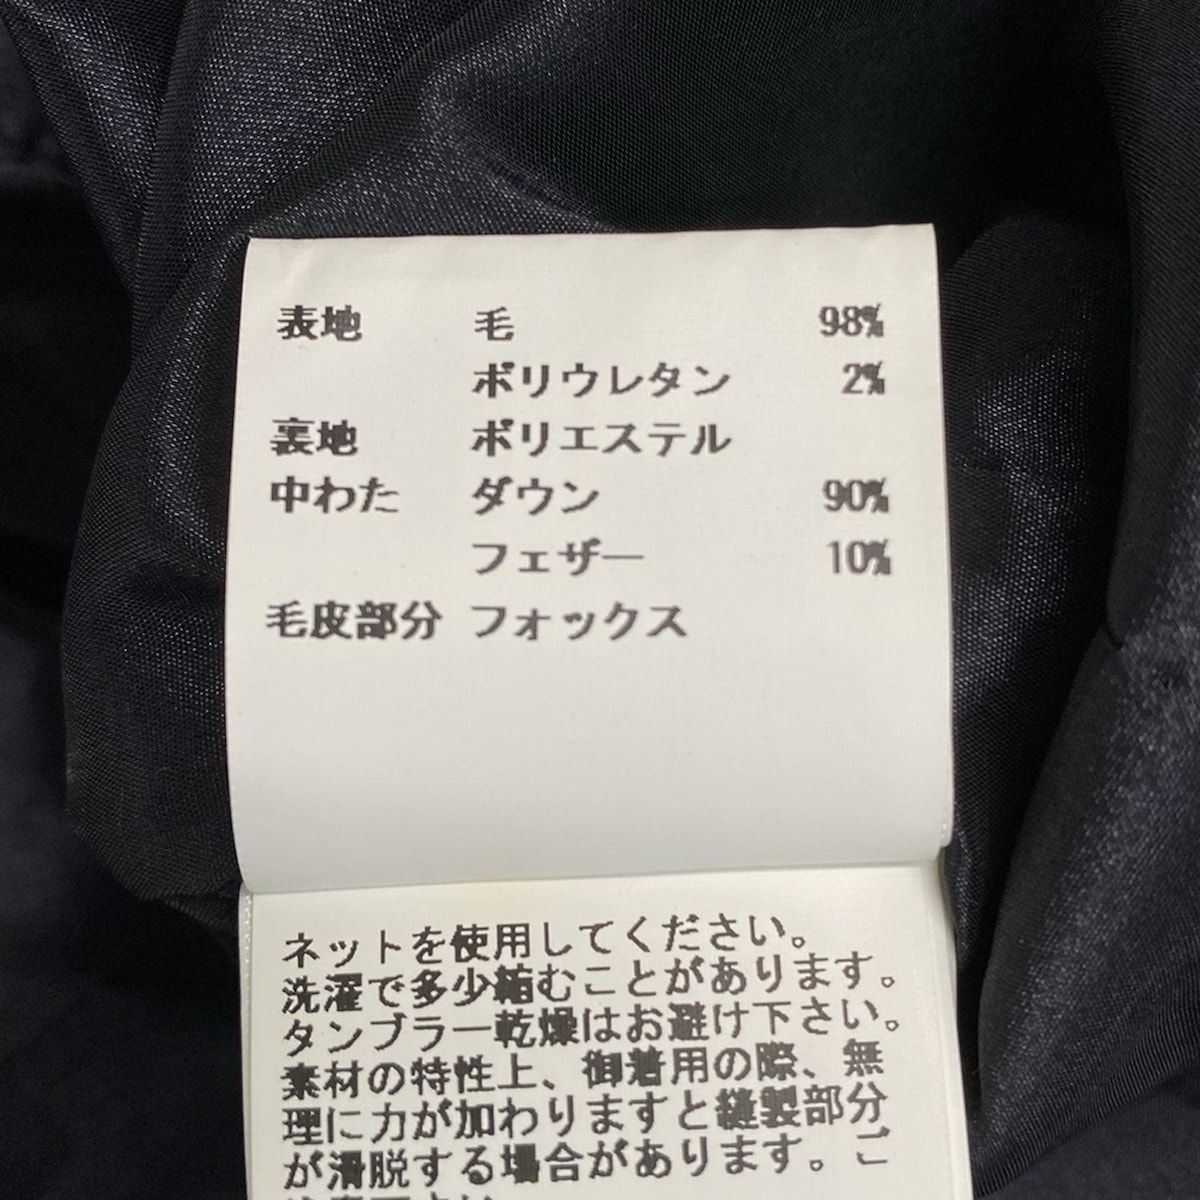 表地 毛 98%
ポリウレタン 2%
裏地 ポリエステル
中わた ダウン 90%
フェザー 10%
毛皮部分 フォックス
ネットを使用してください。
洗濯で多少縮むことがあります。
タンブラー乾燥はお避け下さい。
素材の特性上、御着用の際、無
理に力が加わりますと縫製部分
が滑脱する場合があります。ご